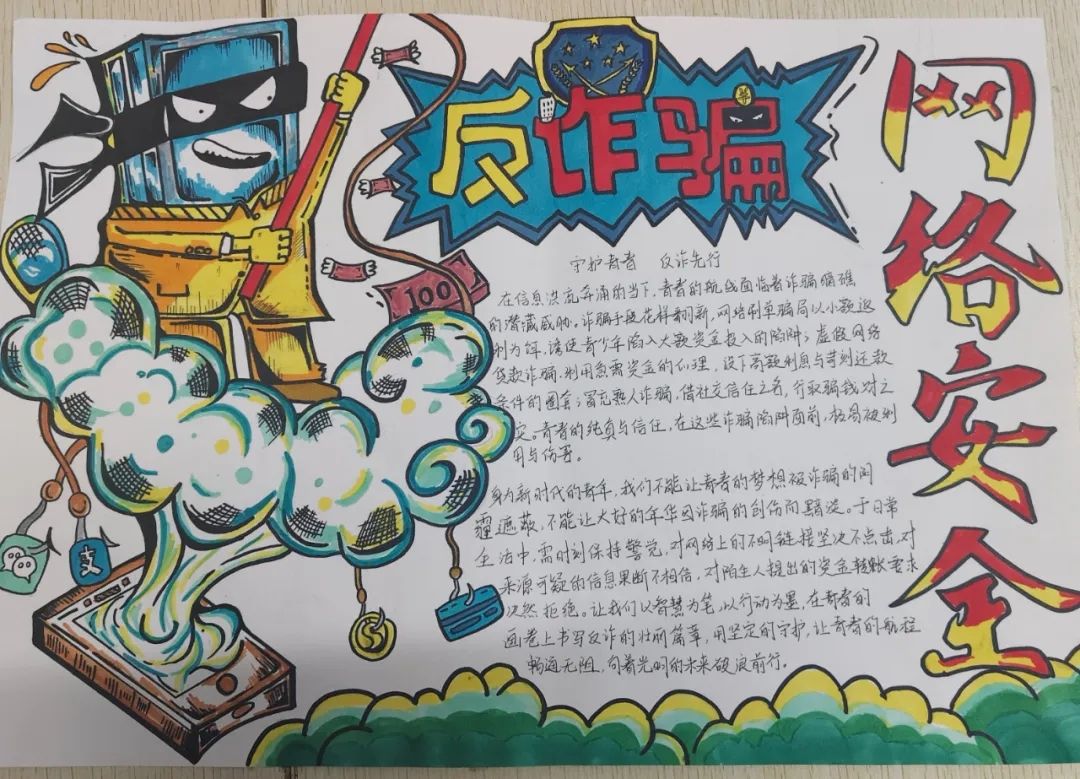 反诈骗
网络安全
100
支
守护青春 反诈先行
在信息洪流奔涌的当下,青春的航线面临着诈骗暗礁
的潜藏威胁。诈骗手段花样翻新,网络刷单骗局以小额返
利为饵,诱使青少年陷入大额资金投入的陷阱;虚假网络
贷款诈骗,利用急需资金的心理,设下高额利息与苛刻还款
条件的圈套;冒充熟人诈骗,借社交信任之名,行取骗钱财之
实。青春的纯真与信任,在这些诈骗陷阱面前,极易被利
用与伤害。
身为新时代的青年,我们不能让青春的梦想被诈骗的阴
霾遮蔽,不能让大好的年华因诈骗的创伤而黯淡。于日常
生活中,需时刻保持警觉,对网络上的不明链接坚决不点击,对
来源可疑的信息果断不相信,对陌生人提出的资金转账要求
决然拒绝。让我们以智慧为笔,以行动为墨,在青春的
画卷上书写反诈的壮丽篇章,用坚定的守护,让青春的航程
畅通无阻,向着光明的未来破浪前行。